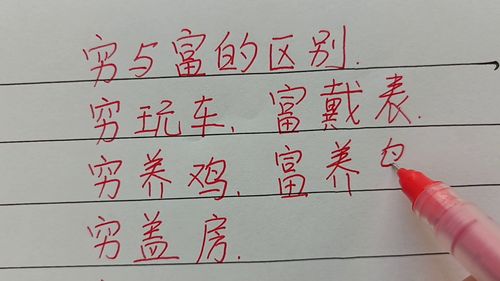 穷与富的区别.
穷玩车、富戴表.
穷养鸡、富养
穷盖房.